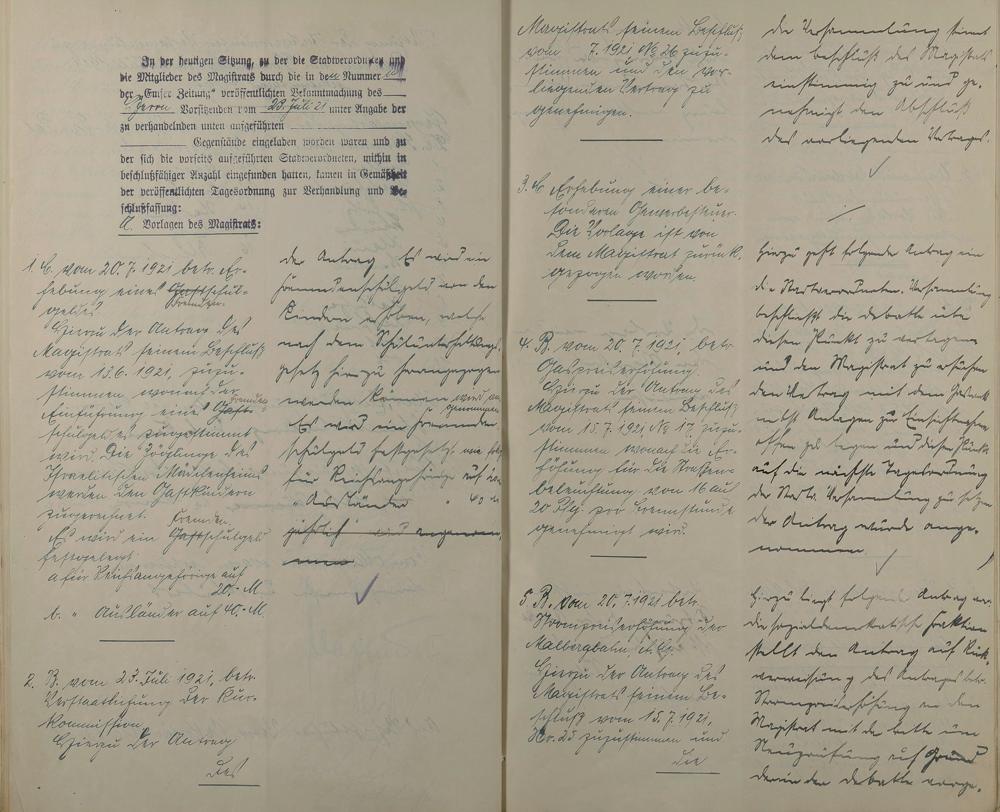 In der heutigen Sitzung, zu der die Stadtverordneten und
die Mitglieder des Magistrats durch die in der Nummer
der „Emser Zeitung“ veröffentlichten Bekanntmachung des
Herrn Vorsitzenden vom 23. Juli 21 unter Angabe der
zu verhandelnden unten aufgeführten
Gegenstände eingeladen worden waren und zu
der sich die vorseits aufgeführten Stadtverordneten, mithin in
beschlußfähiger Anzahl eingefunden hatten, kamen in Gemäßheit
der veröffentlichten Tagesordnung zur Verhandlung und Be-
schlußfassung:
A. Vorlagen des Magistrats:
1. B. vom 20.7.1921 betr. Er-
hebung eines Gastschul-
Fremden
geldes
Hierzu der Antrag des
Magistrats seinem Beschluß
vom 15.6.1921, zuzu-
stimmen, wonach der
Fremden
Einführung eines Gast-
schulgeldes zugestimmt
wird. Die Zöglinge des
Israelitischen Mädchenheims
werden den Gastkindern
zugerechnet.
Fremden
Es wird ein Gastschulgeld
festgelegt:
a für Reichsangehörige auf
20.- M
b. " Ausländer auf 40.- M.
2. B. vom 23. Juli 1921, betr.
Verstaatlichung der Kur-
kommission
Hierzu der Antrag
des
der Antrag Es wird ein
Fremdenschulgeld von den
Kindern erhoben, welche
nach dem Schulunterhaltungs-
gesetz hierzu herangezogen
werden können wird an-
genommen
Es wird ein Fremden-
schulgeld festgesetzt wie folgt
für Reichsangehörige auf 20 M
" Ausländer " 40 M
jährlich wird angenom-
men
Magistrats seinem Beschluß
vom 7.1921 No 26 zuzu-
stimmen und den vor-
liegenden Vertrag zu
genehmigen.
3. B Erhebung einer be-
sonderen Gewerbesteuer.
Die Vorlage ist von
dem Magistrat zurück-
gezogen worden.
4. B. vom 20.7.1921, betr.
Gaspreiserhöhung.
Hierzu der Antrag des
Magistrats seinem Beschluß
vom 15.7.1921 No 17, zuzu-
stimmen wonach die Er-
höhung für die Straßen-
beleuchtung von 16 auf
20 Pfg. pro Brennstunde
genehmigt wird.
5. B. vom 20.7.1921 betr.
Strompreiserhöhung der
Malbergbahn
Hierzu der Antrag des
Magistrats seinem Be-
schluß vom 15.7.1921,
No. 25 zuzustimmen und
die
Die Versammlung stimmt
dem Beschluß des Magistrats
einstimmig zu und ge-
nehmigt den Abschluß
des vorliegenden Vertrages.
Hierzu geht folgender Antrag ein
die Stadtverordneten-Versammlung
beschließt die Debatte über
diesen Punkt zu vertagen
und den Magistrat zu ersuchen
den Vertrag mit der
nebst Anlagen zur Einsichtnahme
offen zu legen und diesen Punkt
auf die nächste Tagesordnung
der Stadtv. Versammlung zu setzen
der Antrag wurde ange-
nommen
Hierzu liegt folgender Antrag vor
die sozialdemokratische Fraktion
stellt den Antrag auf Rück-
verweisung des Antrages betr.
Strompreiserhöhung an den
Magistrat mit der Bitte um
Neuprüfung auf Grund
der in der Debatte vorge-